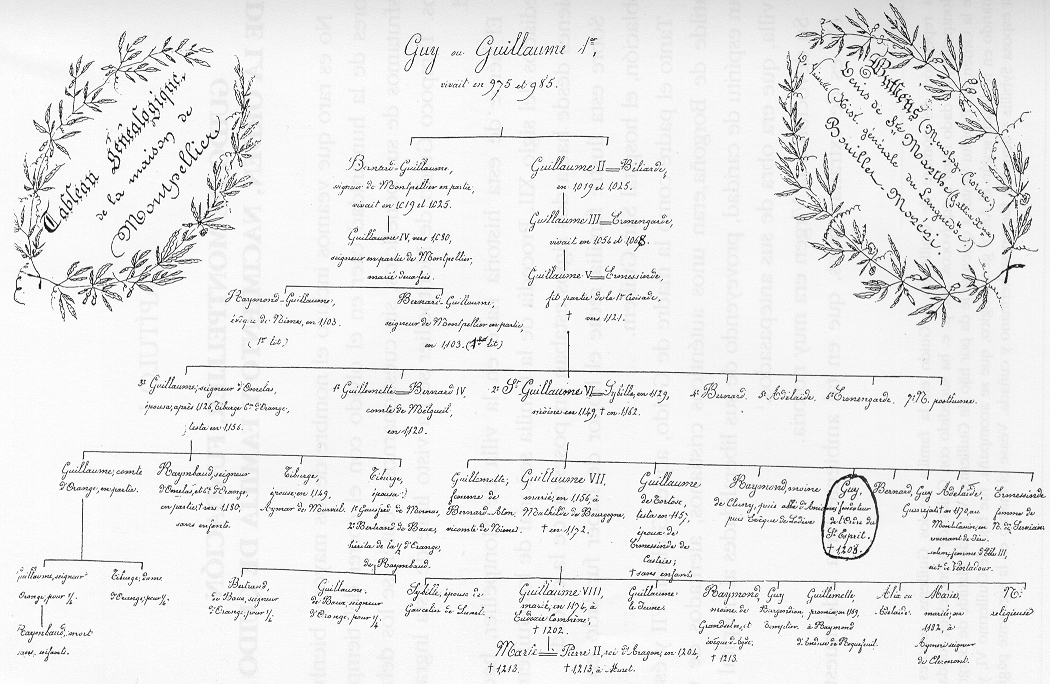 Tableau Généalogique,
de la maison de
Montpellier
Guy ou Guillaume 1er,
vivait en 975 et 985.
Denis de Ste Marthe (Gallia
(Hist. générale du Languedoc)
Bernard-Guillaume,
signeur de Montpellier en partie,
vivait en 1019 et 1025.
Guillaume II = Béliarde,
en 1019 et 1025.
Guillaume IV, vers 1080,
seigneur en partie de Montpellier,
marié deux fois.
Guillaume III = Ermengarde,
vivait en 1054 et 1068.
Guillaume V = Ermessinde,
fit partie de la 1re Croisade.
† vers 1121.
Raymond-Guillaume,
évêque de Nimes, en 1103.
(1er lit)
Bernard-Guillaume,
seigneur de Montpellier en partie,
en 1103. (lit)
3º Guillaume, seigneur d'Omelas,
épouse, après 1126, Tiburge Csse d'Orange,
testa en 1156.
1º Guillemette = Bernard IV,
comte de Melgueil,
en 1120.
2º St Guillaume VI = Sybille, en 1129,
moine en 1149, † en 1162.
4º Bernard.
5º Adelaïde.
6º Ermengarde.
7º N. posthume.
Guillaume, comte
d'Orange, en partie.
Raymbaud, seigneur
d'Omelas, et Cte d'Orange,
en partie, † vers 1180,
sans enfants.
Tiburge,
épouse, en 1149,
Aymar de Murviel.
Tiburge,
épouse:
1º Gaufred de Mornas,
2º Bertrand de Baux,
hérita de la 1/2 d'Orange,
de Raymbaud.
Guillemette,
femme de
Bernard-Aton,
vicomte de Nimes.
Guillaume VII,
marié, en 1156 à
Mathilde de Bourgogne,
† en 1172.
Guillaume
de Tortose
testa en 1157,
époux de
Ermessinde de
Castries;
† sans enfants
Raymond, moine
de Cluny, puis abbé d'Aniane,
puis évêque de Lodève
Guy,
fondateur
de l'Ordre du
St Esprit.
† 1208.
Bernard, Guy
Adelaïde,
Ermessinde
femme de
de Servian
Guillaume, seigneur
Orange, pour 1/4
Tiburge, dame
d'Orange, pour 1/4
Raymbaud, mort
sans enfants.
Bertrand,
de Baux, seigneur
d'Orange, pour 1/4
Guillaume,
de Baux, seigneur
d'Orange, pour 1/4
Sybille, épouse de
Gaucelin de Lunel.
Guillaume VIII,
marié, en 1174, à
Eudoxie Comnène;
† 1202.
Guillaume
le jeune.
Raymond
moine de
Grandselve, et
évêque d'Agde,
† 1213.
Guy
Burgondion,
templier.
Guillemette,
promise, en 1159,
à Raymond
d'Anduze de Roquefeuil.
Alix ou
Adelaïde.
Marie,
mariée, en
1182, à
Aymeri seigneur
de Clermont.
N.
religieuse
Marie = Pierre II, roi d'Aragon, en 1204,
† 1213. † 1213, à Muret.